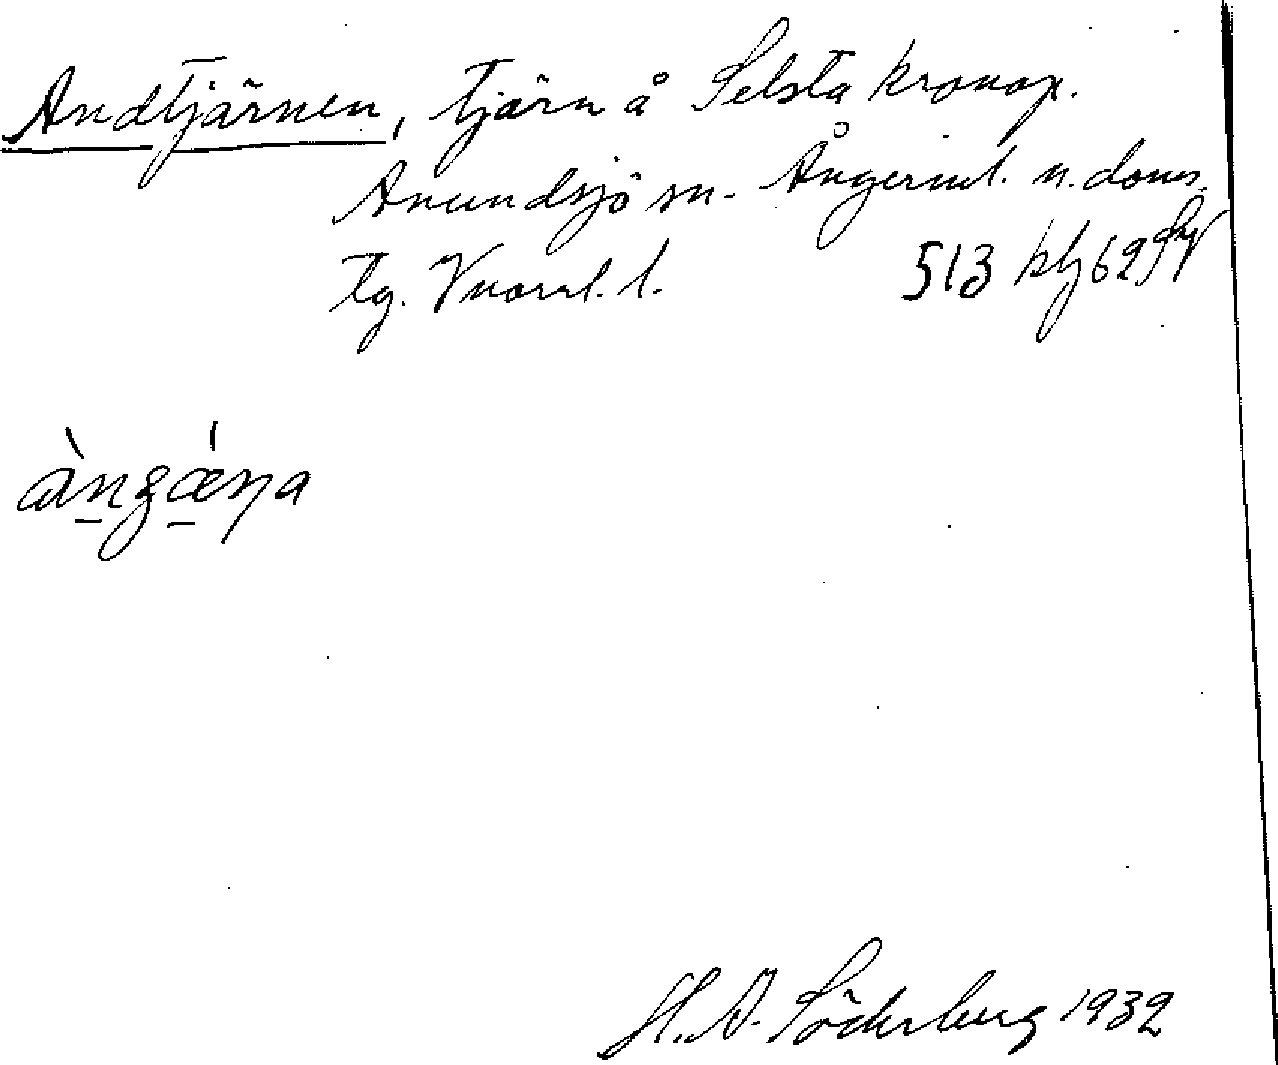 Andtjärnen, tjärn å Selsta kronop.
Anundsjö sn. Ångerml. n. doms.
tg. Vnorrl. l. 513 klj 62
àngæŋa
H. A. Söderberg 1932